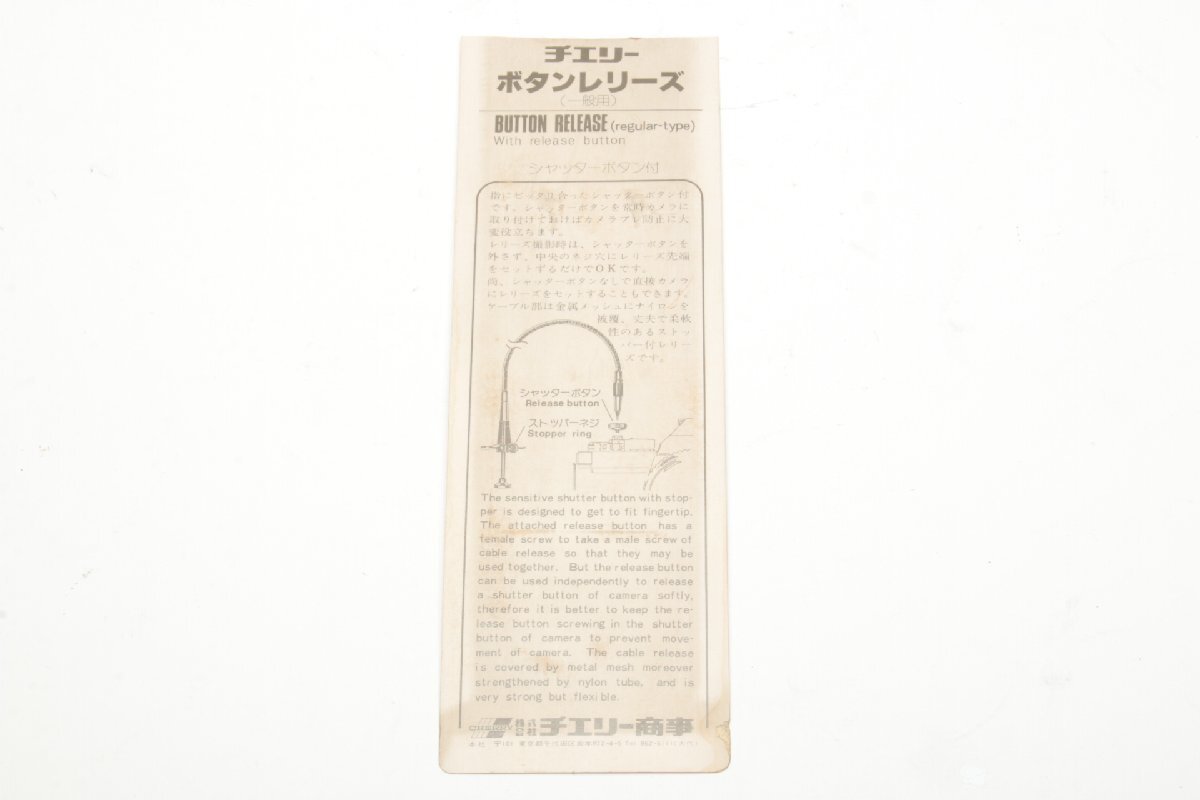 チエリー
ボタンレリーズ
(一般用)
BUTTON RELEASE (regular-type)
With release button
シャッターボタン付
指にピッタリ合ったシャッターボタン付
です。シャッターボタンを常時カメラに
取り付けておけばカメラブレ防止に大
変役立ちます。
レリーズ撮影時は、シャッターボタンを
外さず、中央のネジ穴にレリーズ先端
をセットするだけでOKです。
尚、シャッターボタンなしで直接カメラ
にレリーズをセットすることもできます。
ケーブル部は金属メッシュにナイロンを
被覆、丈夫で柔軟
性のあるストッ
パー付レリー
ズです。
シャッターボタン
Release button
ストッパーネジ
Stopper ring
The sensitive shutter button with stop-
per is designed to get to fit fingertip.
The attached release button has a
female screw to take a male screw of
cable release so that they may be
used together. But the release button
can be used independently to release
a shutter button of camera softly,
therefore it is better to keep the re-
lease button screwing in the shutter
button of camera to prevent move-
ment of camera. The cable release
is covered by metal mesh moreover
strengthened by nylon tube, and is
very strong but flexible.
株式会社 チエリー商事
本社 東京都千代田区